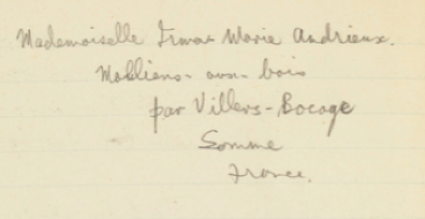 Mademoiselle Irma Marie Andrieux.
Molliens-aux-bois
par Villers-Bocage
Somme
France.